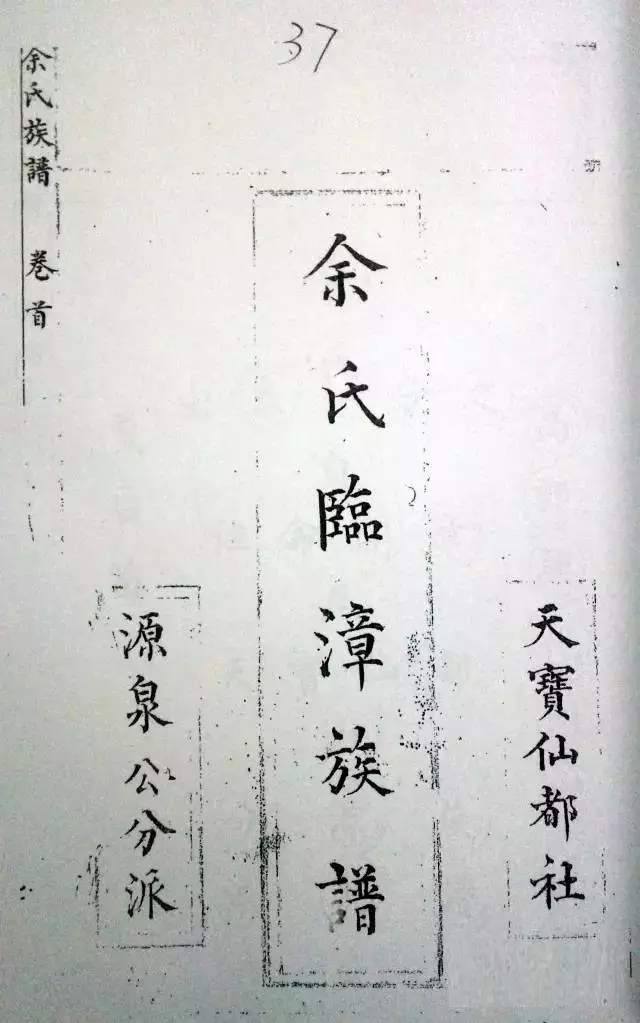 37
天寶仙都社
余氏臨漳族譜
源泉公分派
余氏族譜 卷首